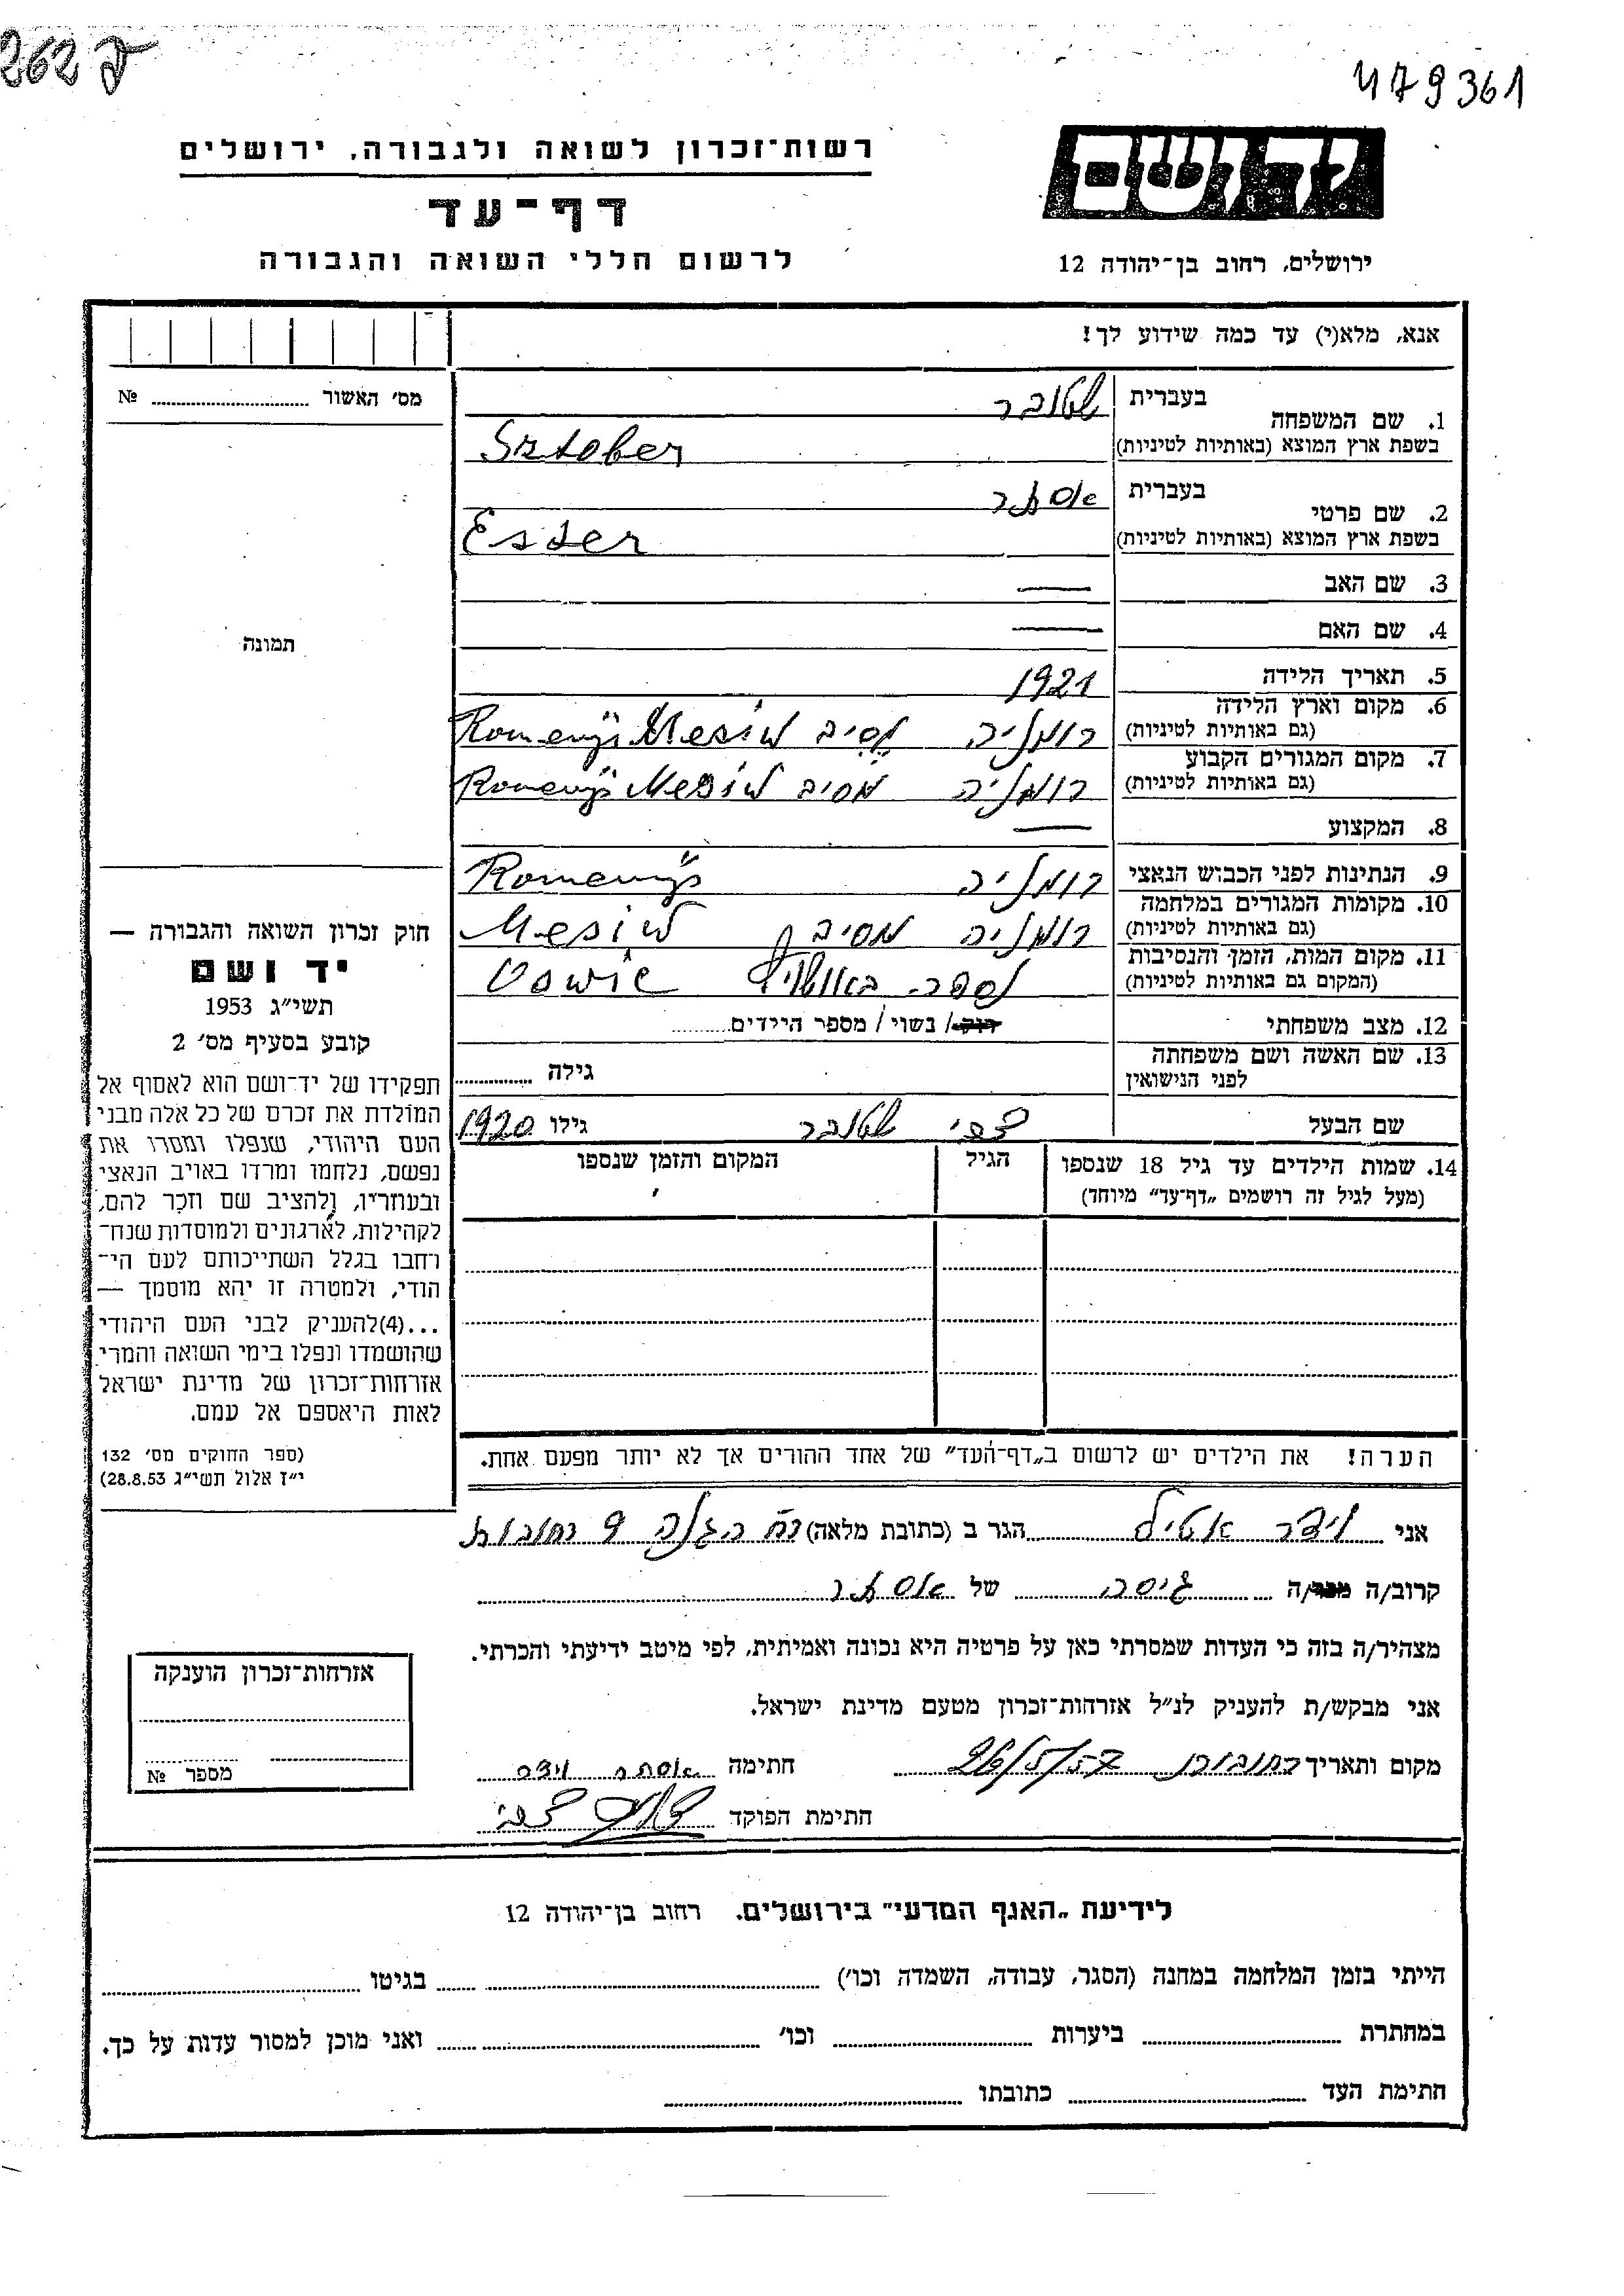 262 ד
479361
יד ושם
ירושלים, רחוב בן־יהודה 12
רשות־זכרון לשואה ולגבורה, ירושלים
דף־עד
לרשום חללי השואה והגבורה
אנא, מלא(י) עד כמה שידוע לך!
1. שם המשפחה בעברית שטובר
בשפת ארץ המוצא (באותיות לטיניות) Sztober
2. שם פרטי בעברית אסתר
בשפת ארץ המוצא (באותיות לטיניות) Ester
3. שם האב —
4. שם האם —
5. תאריך הלידה 1921
6. מקום וארץ הלידה
(גם באותיות לטיניות) רומניה מסיב Mesiw
7. מקום המגורים הקבוע
(גם באותיות לטיניות) רומניה מסיב Mesiw
8. המקצוע —
9. הנתינות לפני הכבוש הנאצי רומניה
10. מקומות המגורים במלחמה
(גם באותיות לטיניות) רומניה מסיב Mesiw
11. מקום המות, הזמן והנסיבות
(המקום גם באותיות לטיניות) נספה
12. מצב משפחתי רוק/ נשוי/ מספר הילדים
13. שם האשה ושם משפחתה
לפני הנישואין גילה
שם הבעל צבי שטובר גילו 1920
14. שמות הילדים עד גיל 18 שנספו הגיל המקום והזמן שנספו
(מעל לגיל זה רושמים „דף־עד” מיוחד)
הערה! את הילדים יש לרשום ב„דף־העד” של אחד ההורים אך לא יותר מפעם אחת.
מס׳ האשור №
תמונה
חוק זכרון השואה והגבורה —
יד ושם
תשי״ג 1953
קובע בסעיף מס׳ 2
תפקידו של יד־ושם הוא לאסוף אל
המולדת את זכרם של כל אלה מבני
העם היהודי, שנפלו ומסרו את
נפשם, נלחמו ומרדו באויב הנאצי
ובעוזריו, ולהציב שם וזכר להם,
לקהילות, לארגונים ולמוסדות שנח־
רחבו בגלל השתייכותם לעם הי־
הודי, ולמטרה זו יהא מוסמך —
...(4)להעניק לבני העם היהודי
שהושמדו ונפלו בימי השואה והמרי
אזרחות־זכרון של מדינת ישראל
לאות היאספם אל עמם.
(ספר החוקים מס׳ 132
י״ז אלול תשי״ג 28.8.53)
אני הגר ב (כתובת מלאה) רח הגנה 9 רחובות
קרוב/ה מכר/ה גיסה של אסתר
מצהיר/ה בזה כי העדות שמסרתי כאן על פרטיה היא נכונה ואמיתית, לפי מיטב ידיעתי והכרתי.
אני מבקש/ת להעניק לנ״ל אזרחות־זכרון מטעם מדינת ישראל.
מקום ותאריך רחובות 26/5/57 חתימה אסתר
חתימת הפוקד צבי
אזרחות־זכרון הוענקה
מספר №
לידיעת „האגף המדעי” בירושלים. רחוב בן־יהודה 12
הייתי בזמן המלחמה במחנה (הסגר, עבודה, השמדה וכו׳) בגיטו
במחתרת ביערות וכו׳ ואני מוכן למסור עדות על כך.
חתימת העד כתובתו